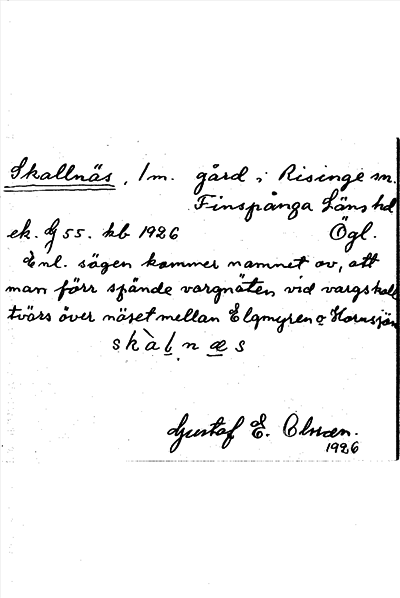 Skallnäs, 1 m. gård i Risinge sn.
Finspånga Läns hd
ek. G 55. kb 1926 Ögl.
Enl. sägen kommer namnet av, att
man förr spände vargnäten vid vargskall
tvärs över näset mellan Elgmyren o Hornsjön
skàḷ.næs
Gustaf E. Olsson.
1926